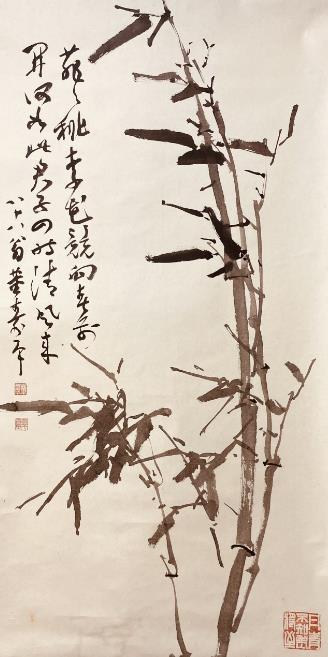 桃李花競向春前
開何如此君子四時清風來
八十八翁董壽平